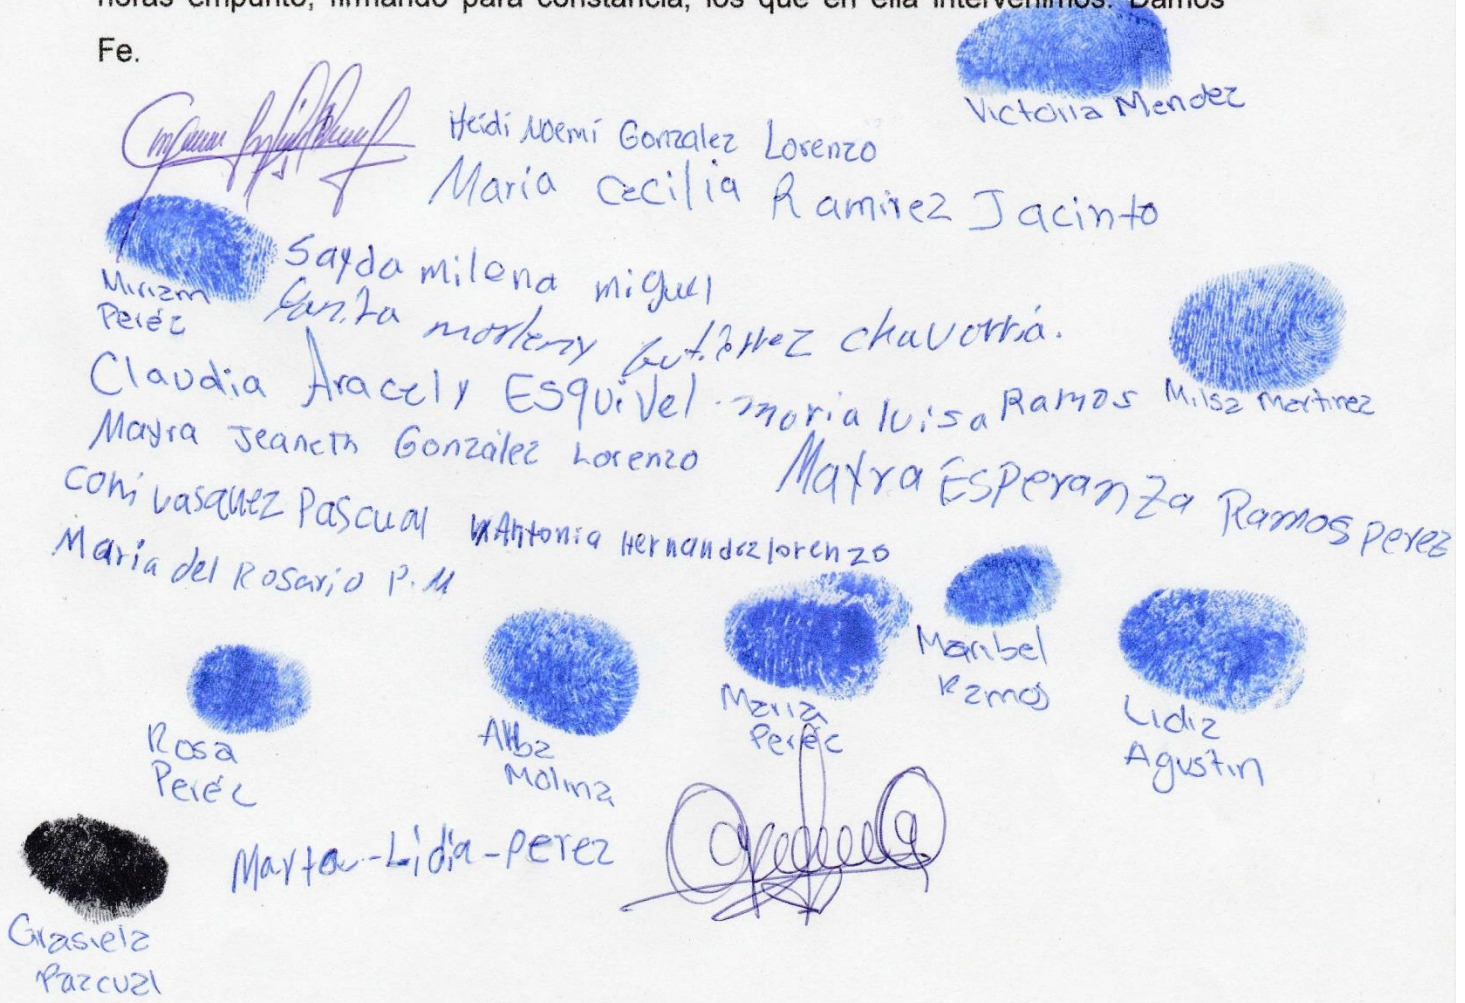 horas empunto, firmando para constancia, los que en ella intervenimos. Damos
Fe.
Victoria Mendez
Heidi Noemí Gonzalez Lorenzo
Maria Cecilia Ramirez Jacinto
Miriam
Peréz
Sayda milena miguel
Gutiérrez chavarría.
Claudia Aracely Esquivel
maria luisa Ramos
Milsa Martinez
Mayra Jeaneth González Lorenzo
Mayra Esperanza Ramos perez
coni vasquez Pascual
Antonia Hernandez lorenzo
Maria del Rosario P.M
Rosa
Peréz
Alba
Molina
Maria
Peréz
Maribel
Ramos
Lidia
Agustin
Marta-Lidia-perez
Grasiela
Pascual